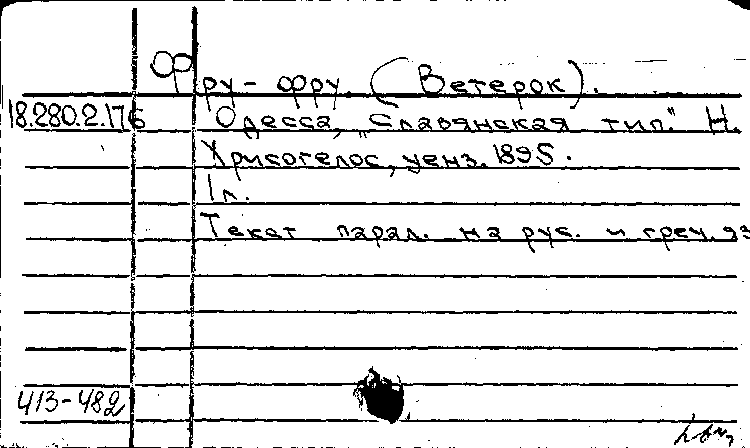 Фру-фру. (Ветерок).
18.280.2.176 Одесса, „Славянская тип." Н.
Хрисогелос, ценз. 1895.
1 л.
Текст парал. на рус. и греч. яз
413-482